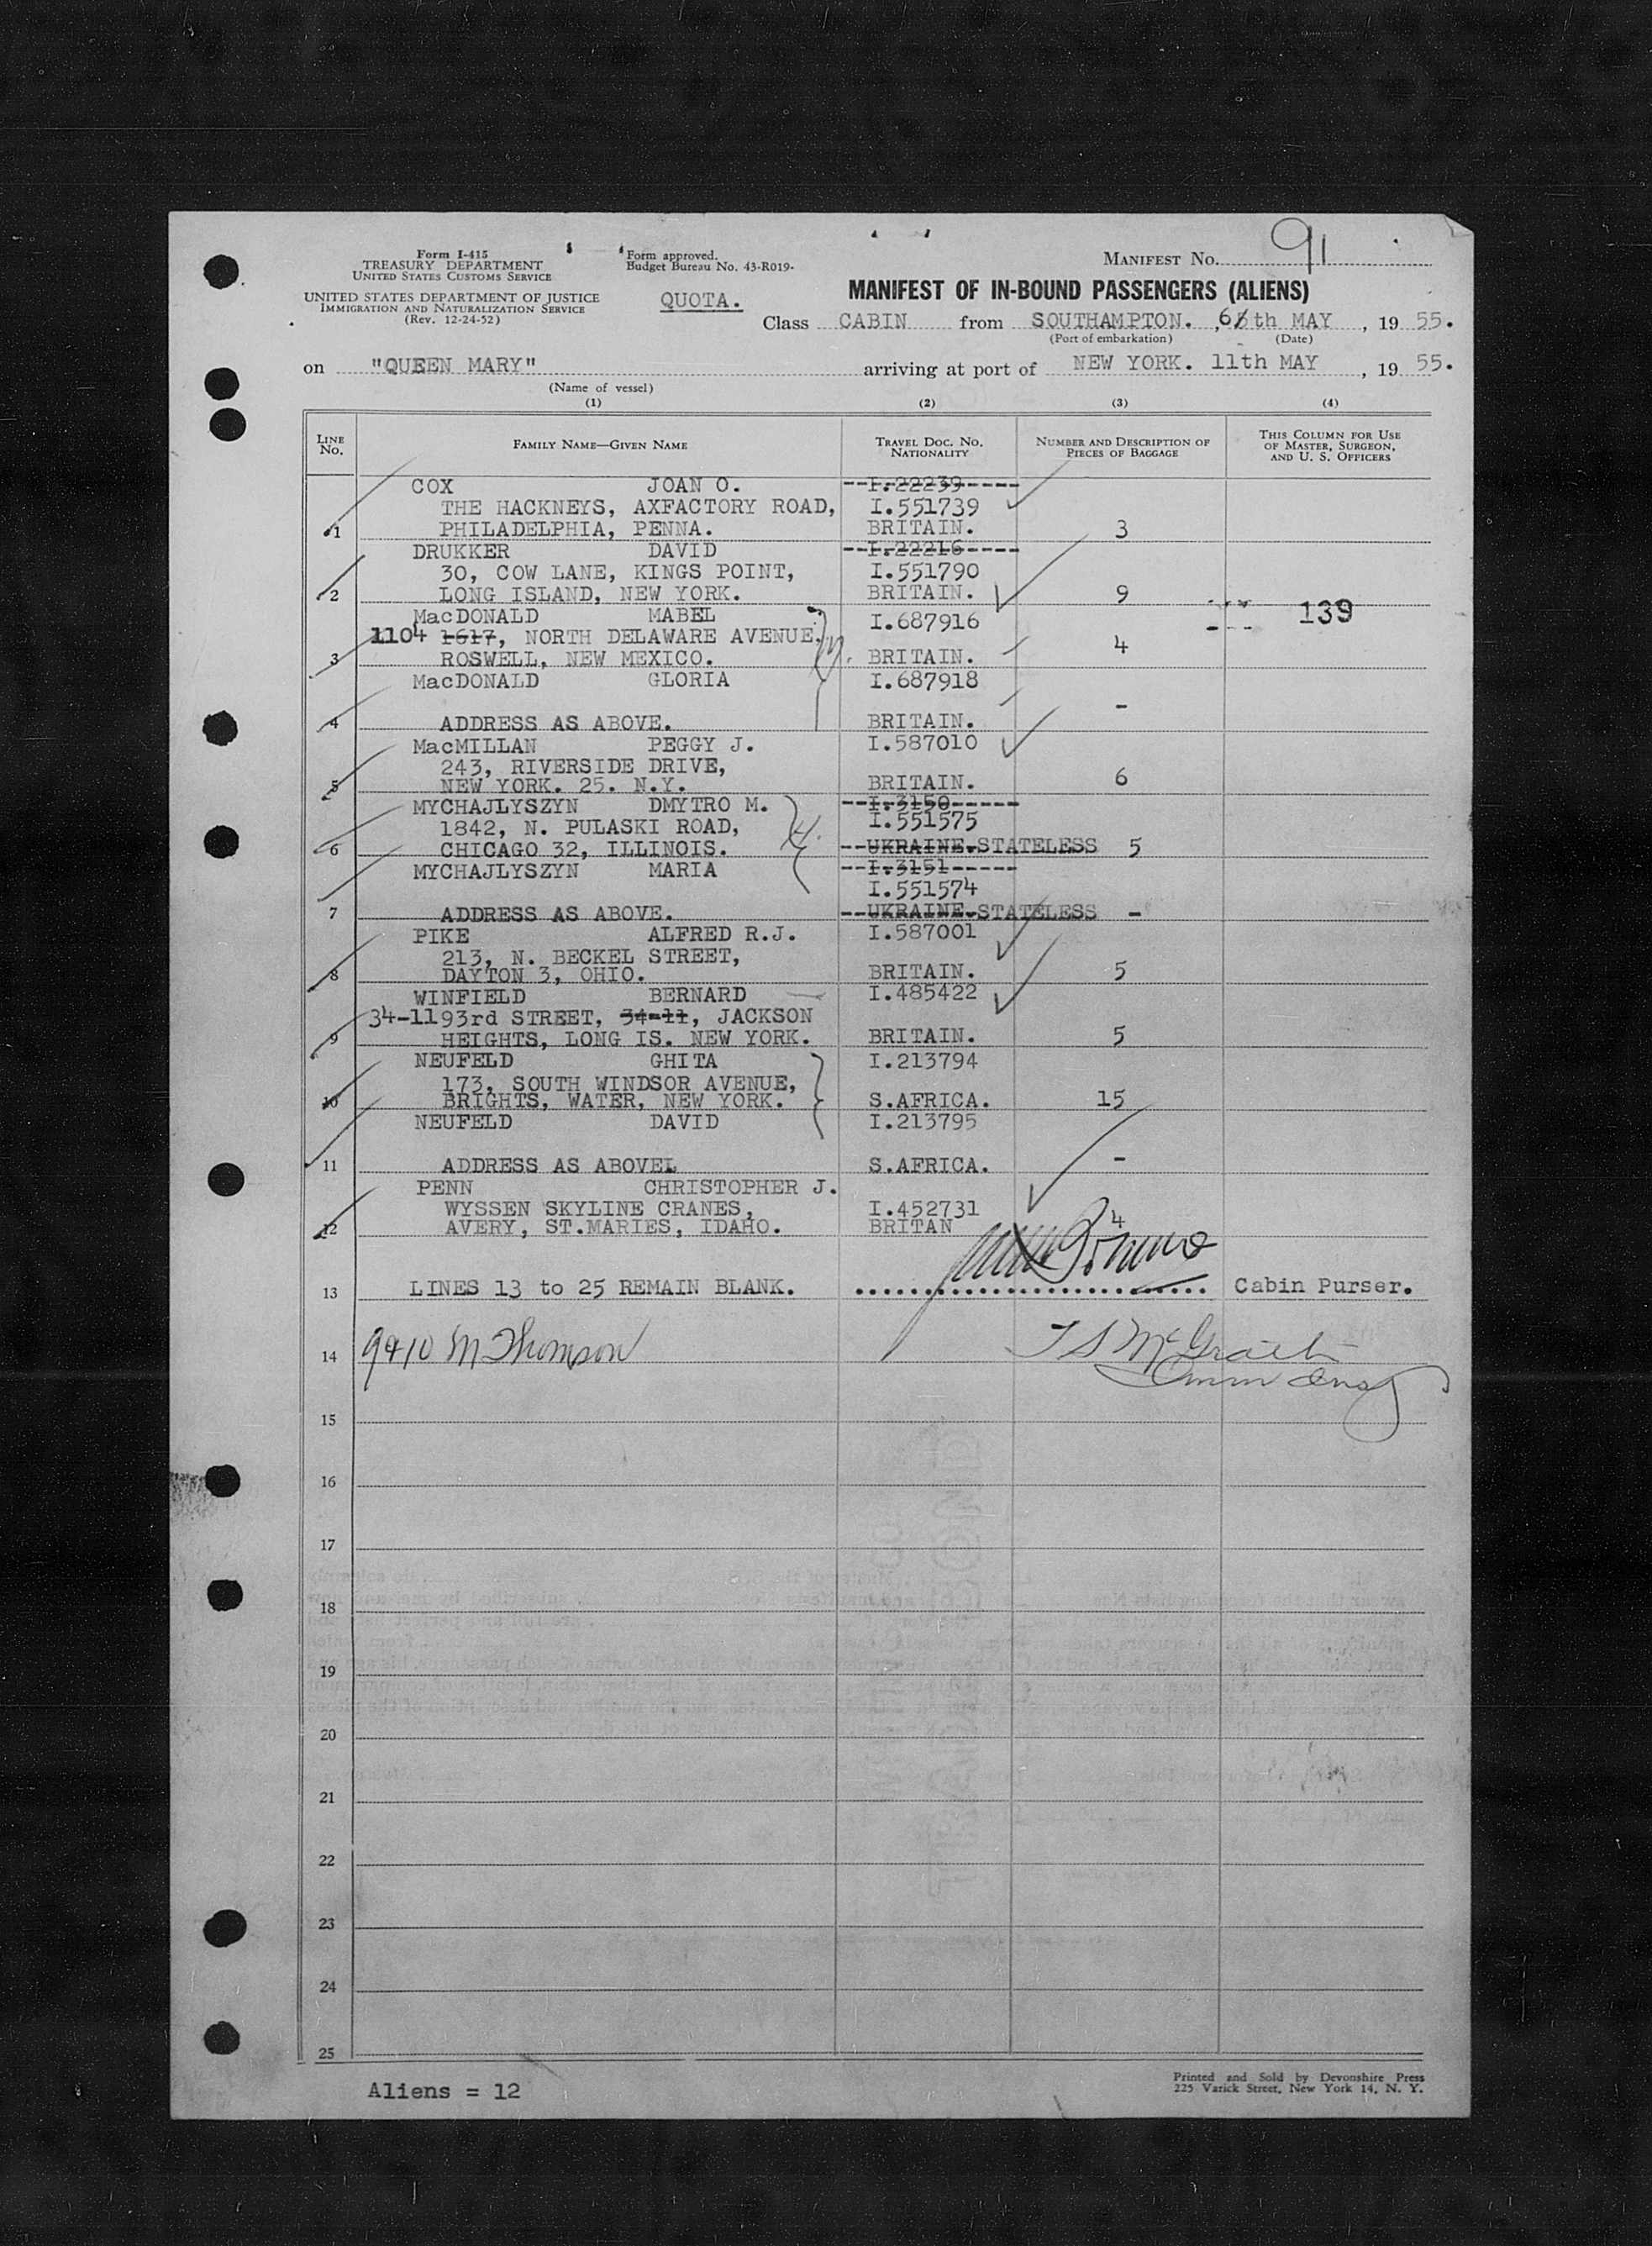 Form I-415
TREASURY DEPARTMENT
UNITED STATES CUSTOMS SERVICE
UNITED STATES DEPARTMENT OF JUSTICE
IMMIGRATION AND NATURALIZATION SERVICE
(Rev. 12-24-52)
Form approved.
Budget Bureau No. 43-R019-
QUOTA.
MANIFEST NO. 91
MANIFEST OF IN-BOUND PASSENGERS (ALIENS)
Class CABIN from SOUTHAMPTON. , 6th MAY , 19 55.
(Port of embarkation) (Date)
on "QUEEN MARY" arriving at port of NEW YORK. 11th MAY , 19 55.
(Name of vessel)
(1) (2) (3) (4)
LINE NO. FAMILY NAME—GIVEN NAME TRAVEL DOC. NO. NATIONALITY NUMBER AND DESCRIPTION OF PIECES OF BAGGAGE THIS COLUMN FOR USE OF MASTER, SURGEON, AND U. S. OFFICERS
COX JOAN O. --I.22239-----
THE HACKNEYS, AXFACTORY ROAD, I.551739
1 PHILADELPHIA, PENNA. BRITAIN. 3
DRUKKER DAVID --I.22216-----
30, COW LANE, KINGS POINT, I.551790
2 LONG ISLAND, NEW YORK. BRITAIN. 9
MacDONALD MABEL I.687916 139
1104 1617, NORTH DELAWARE AVENUE,
3 ROSWELL, NEW MEXICO. BRITAIN. 4
MacDONALD GLORIA I.687918
4 ADDRESS AS ABOVE. BRITAIN. -
MacMILLAN PEGGY J. I.587010
243, RIVERSIDE DRIVE,
5 NEW YORK. 25. N.Y. BRITAIN. 6
MYCHAJLYSZYN DMYTRO M. --I.3150-----
1842, N. PULASKI ROAD, I.551575
6 CHICAGO 32, ILLINOIS. --UKRAINE.STATELESS 5
MYCHAJLYSZYN MARIA --I.3151-----
I.551574
7 ADDRESS AS ABOVE. --UKRAINE.STATELESS -
PIKE ALFRED R.J. I.587001
213, N. BECKEL STREET,
8 DAYTON 3, OHIO. BRITAIN. 5
WINFIELD BERNARD I.485422
34-1193rd STREET, 34-11, JACKSON
9 HEIGHTS, LONG IS. NEW YORK. BRITAIN. 5
NEUFELD GHITA I.213794
173, SOUTH WINDSOR AVENUE,
10 BRIGHTS, WATER, NEW YORK. S.AFRICA. 15
NEUFELD DAVID I.213795
11 ADDRESS AS ABOVE. S.AFRICA. -
PENN CHRISTOPHER J.
WYSSEN SKYLINE CRANES, I.452731
12 AVERY, ST.MARIES, IDAHO. BRITAN 4
13 LINES 13 to 25 REMAIN BLANK. Cabin Purser.
14 9410 M Thomson T S McGrath
15
16
17
18
19
20
21
22
23
24
25
Aliens = 12
Printed and Sold by Devonshire Press
225 Varick Street, New York 14, N. Y.